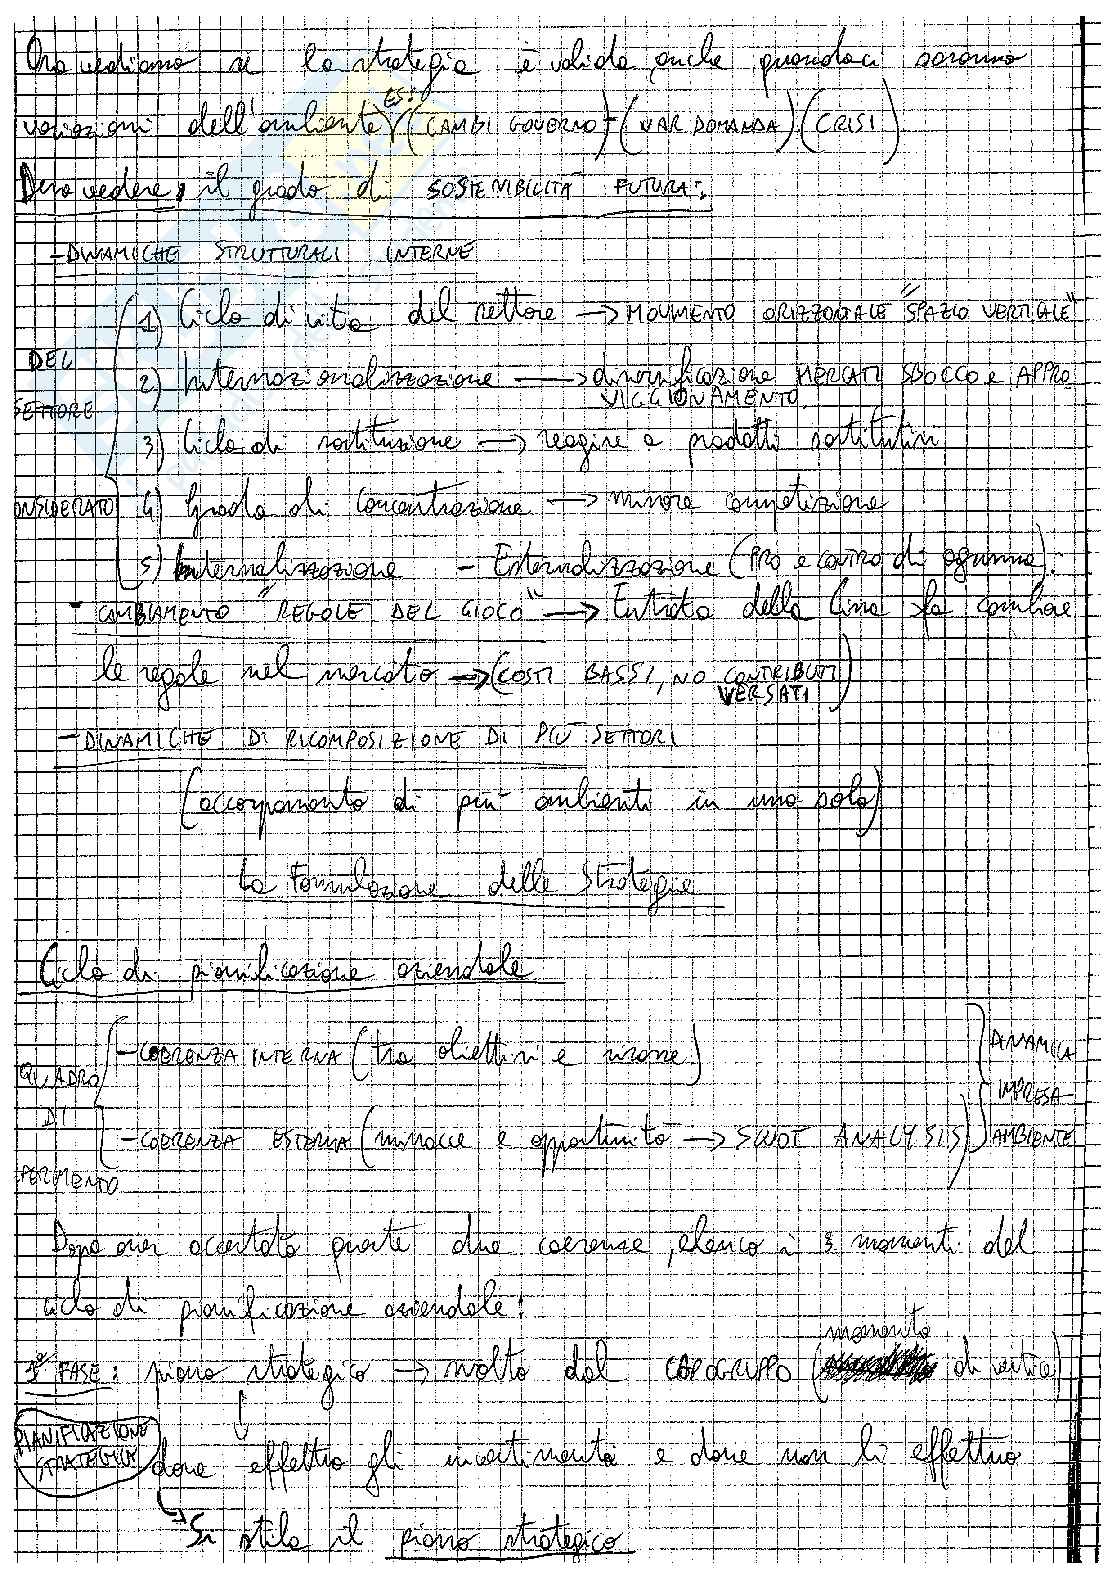 Ora vediamo se la strategia è valida anche quando ci saranno
variazioni dell'ambiente ES: (CAMBI GOVERNO) - (VAR. DOMANDA) (CRISI)
Devo vedere il grado di SOSTENIBILITÀ FUTURA:
- DINAMICHE STRUTTURALI INTERNE
1) Ciclo di vita del settore → MOVIMENTO ORIZZONTALE "SPAZIO VERTICALE"
DEL
2) Internazionalizzazione → diversificazione MERCATI SBOCCO e APPRO
SETTORE VIGGIONAMENTO.
3) Ciclo di sostituzione → reagire a prodotti sostitutivi
ONSIDERATO 4) Grado di concentrazione → minore competizione
5) Internalizzazione - Esternalizzazione (PRO e CONTRO di ognuna).
- CAMBIAMENTO "REGOLE DEL GIOCO" → Entrata della Cina fa cambiare
le regole nel mercato → (COSTI BASSI, NO CONTRIBUTI
VERSATI)
- DINAMICHE DI RICOMPOSIZIONE DI PIÙ SETTORI
(accorpamento di più ambienti in uno solo)
La Formulazione delle Strategie
Ciclo di pianificazione aziendale
- COERENZA INTERNA (tra obiettivi e risorse) DINAMICA
QUADRO
DI IMPRESA-
- COERENZA ESTERNA (minacce e opportunità → SWOT ANALYSIS) AMBIENTE
FERIMENTO
Dopo aver accertato queste due coerenze, elenco i 3 momenti del
ciclo di pianificazione aziendale:
momento
1° FASE: piano strategico → svolto dal CAPOGRUPPO ( di vertice)
PIANIFICAZIONE
STRATEGICA dove effettuo gli investimenti e dove non li effettuo
Si stila il piano strategico